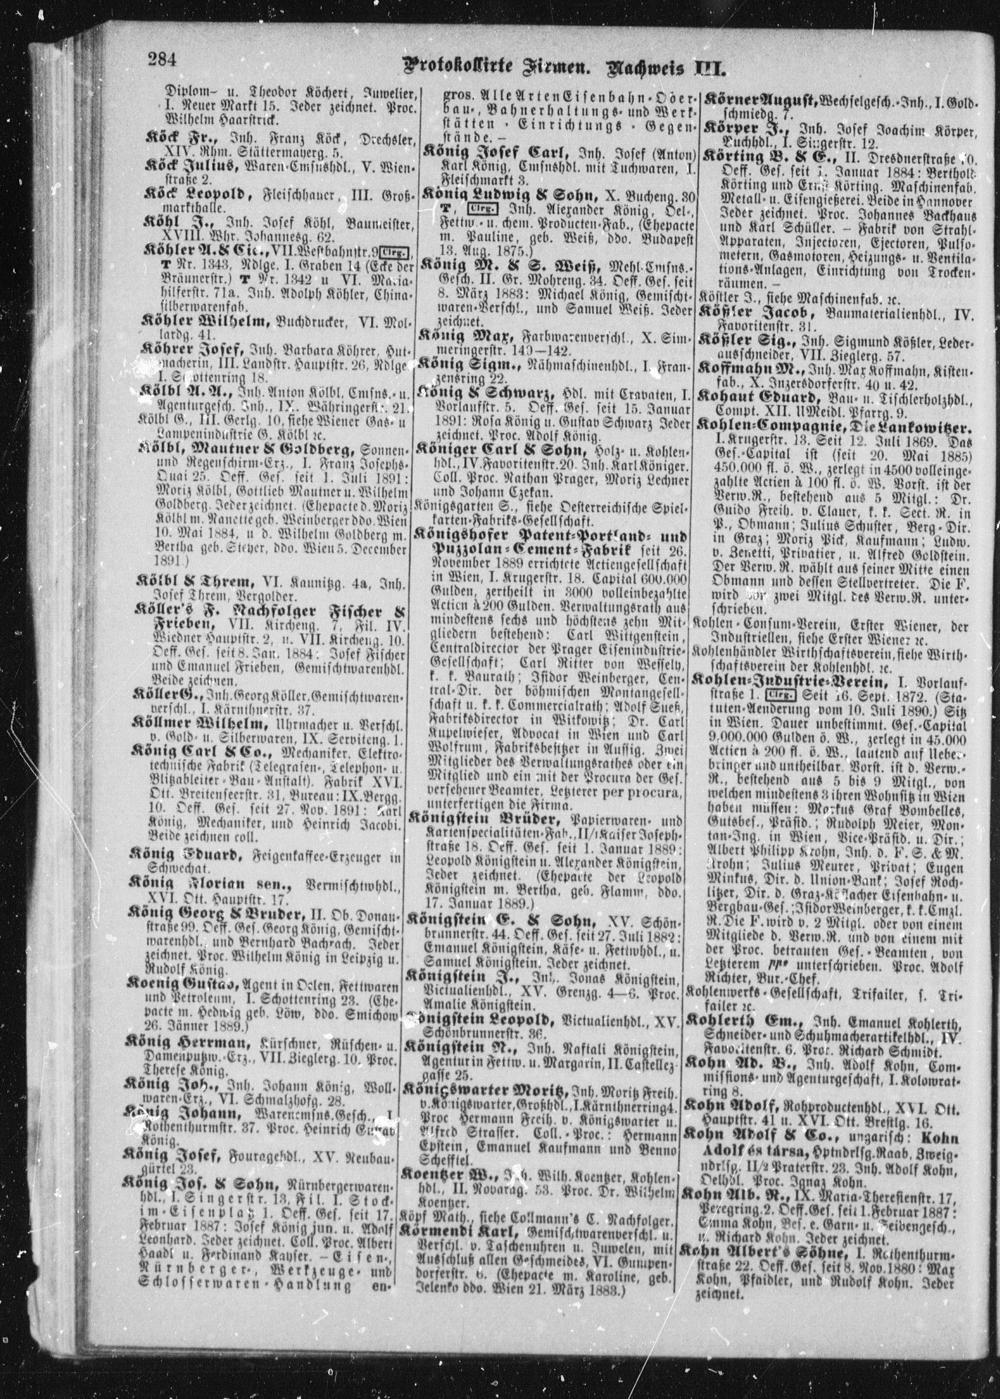 284
Protokollirte Firmen. Nachweis III.
Diplom- u. Theodor Köchert, Juwelier,
I. Neuer Markt 15. Jeder zeichnet. Proc.
Wilhelm Haarstrick.
Köck Fr., Inh. Franz Köck, Drechsler,
XIV. Rhm. Stättermayerg. 5.
Köck Julius, Waren-Cmsnshdl., V. Wien-
straße 2.
Köck Leopold, Fleischhauer, III. Groß-
markthalle.
Köhl J., Inh. Josef Köhl, Baumeister,
XVIII. Whr. Johannesg. 62.
Köhler A. & Cie., VII. Westbahnstr. 9 Clrg.,
T Nr. 1343, Ndlge. I. Graben 14 (Ecke der
Bräunerstr.) T Nr. 1342 u VI. Maria-
hilferstr. 71a. Inh. Adolph Köhler, China-
silberwarenfab.
Köhler Wilhelm, Buchdrucker, VI. Mol-
lardg. 41.
Köhrer Josef, Inh. Barbara Köhrer, Hut-
macherin, III. Landstr. Hauptstr. 26, Ndlge
I. Schottenring 18.
Kölbl A. A., Inh. Anton Kölbl, Cmsns.- u.
Agenturgesch. Inh., IX. Währingerstr. 21.
Kölbl G., III. Gerlg. 10, siehe Wiener Gas- u
Lampenindustrie G. Kölbl ꝛc.
Kölbl, Mautner & Goldberg, Sonnen-
und Regenschirm-Erz., I. Franz Josephs-
Quai 25. Oeff. Ges. seit 1. Juli 1891:
Moriz Kölbl, Gottlieb Mautner u. Wilhelm
Goldberg. Jeder zeichnet. (Ehepacte d. Moriz
Kölbl m. Nanette geb. Weinberger ddo. Wien
10. Mai 1884, u. d. Wilhelm Goldberg m.
Bertha geb. Steyer, ddo. Wien 5. December
1891.)
Kölbl & Threm, VI. Kaunitzg. 4a, Inh.
Josef Threm, Vergolder.
Köller's F. Nachfolger Fischer &
Frieben, VII. Kircheng. 7, Fil. IV.
Wiedner Hauptstr. 2, u. VII. Kircheng. 10.
Oeff. Ges. seit 8. Jan. 1884: Josef Fischer
und Emanuel Frieben, Gemischtwarenhdl.
Beide zeichnen.
Köller G., Inh. Georg Köller, Gemischtwaren-
verschl., I. Kärnthnerstr. 37.
Köllmer Wilhelm, Uhrmacher u. Verschl.
v. Gold- u. Silberwaren, IX. Serviteng. 1.
König Carl & Co., Mechaniker. Elektro-
technische Fabrik (Telegrafen-, Telephon- u.
Blitzableiter-Bau-Anstalt). Fabrik XVI.
Ott. Breitenseerstr. 31, Bureau: IX. Bergg.
10. Oeff. Ges. seit 27. Nov. 1891: Karl
König, Mechaniker, und Heinrich Jacobi.
Beide zeichnen coll.
König Eduard, Feigenkaffee-Erzeuger in
Schwechat.
König Florian sen., Vermischtwhdl.,
XVI. Ott. Hauptstr. 17.
König Georg & Bruder, II. Ob. Donau-
straße 99. Oeff. Ges. Georg König, Gemischt-
warenhdl. und Bernhard Bachrach. Jeder
zeichnet. Proc. Wilhelm König in Leipzig u.
Rudolf König.
Koenig Gustav, Agent in Oelen, Fettwaren
und Petroleum, I. Schottenring 23. (Ehe-
pacte m. Hedwig geb. Löw, ddo. Smichow
26. Jänner 1889.)
König Herrman, Kürschner, Rüschen- u.
Damenputzw.-Erz., VII. Zieglerg. 10. Proc.
Therese König.
König Joh., Inh. Johann König, Woll-
waren-Erz., VI. Schmalzhofg. 28.
König Johann, Warencmsns.Gesch., I.
Rothenthurmstr. 37. Proc. Heinrich Gustav
König.
König Josef, Fouragehdl., XV. Neubau-
gürtel 23.
König Jos. & Sohn, Nürnbergerwaren-
hdl., I. Singerstr. 13, Fil. I. Stock-
im-Eisenplatz 1. Oeff. Ges. seit 17.
Februar 1887: Josef König jun. u. Adolf
Leonhard. Jeder zeichnet. Coll. Proc. Albert
Haadl u. Ferdinand Kayser. — Eisen-,
Nürnberger-, Werkzeuge- und
Schlosserwaren-Handlung en-
gros. Alle Arten Eisenbahn-Ober-
bau-, Bahnerhaltungs- und Werk-
stätten-Einrichtungs-Gegen-
stände. —
König Josef Carl, Inh. Josef (Anton)
Karl König, Cmsnshdl. mit Tuchwaren, I.
Fleischmarkt 3.
König Ludwig & Sohn, X. Bucheng. 30
T, Clrg. Inh. Alexander König, Oel-,
Fettw.- u. chem. Producten-Fab., (Ehepacte
m. Pauline, geb. Weiß, ddo. Budapest
13. Aug. 1875.)
König M. & S. Weiß, Mehl-Cmsns.-
Gesch. II. Gr. Mohreng. 34. Oeff. Ges. seit
8. März 1883: Michael König, Gemischt-
waren-Verschl., und Samuel Weiß. Jeder
zeichnet.
König Max, Farbwarenverschl., X. Sim-
meringerstr. 140—142.
König Sigm., Nähmaschinenhdl., I. Fran-
zensring 22.
König & Schwarz, Hdl. mit Cravaten, I.
Vorlaufstr. 5. Oeff. Ges. seit 15. Januar
1891: Rosa König u. Gustav Schwarz Jeder
zeichnet. Proc. Adolf König.
Königer Carl & Sohn, Holz- u. Kohlen-
hdl., IV. Favoritenstr. 20. Inh. Karl Königer.
Coll. Proc. Nathan Prager, Moriz Lechner
und Johann Czekan.
Königsgarten S., siehe Oesterreichische Spiel-
karten-Fabriks-Gesellschaft.
Königshofer Patent-Portland- und
Puzzolan-Cement-Fabrik seit 26.
November 1889 errichtete Actiengesellschaft
in Wien, I. Krugerstr. 18. Capital 600.000
Gulden, zertheilt in 3000 volleinbezahlte
Actien à 200 Gulden. Verwaltungsrath aus
mindestens sechs und höchstens zehn Mit-
gliedern bestehend: Carl Wittgenstein,
Centraldirector der Prager Eisenindustrie-
Gesellschaft; Carl Ritter von Wessely,
k. k. Baurath; Isidor Weinberger, Cen-
tral-Dir. der böhmischen Montangesell-
schaft u. k. k. Commercialrath; Adolf Sueß,
Fabriksdirector in Witkowitz; Dr. Carl
Kupelwieser, Advocat in Wien und Carl
Wolfrum, Fabriksbesitzer in Aussig. Zwei
Mitglieder des Verwaltungsrathes oder ein
Mitglied und ein mit der Procura der Ges.
versehener Beamter, Letzterer per procura,
unterfertigen die Firma.
Königstein Brüder, Papierwaren- und
Kartenspecialitäten-Fab., II/1 Kaiser Joseph-
straße 18. Oeff. Ges. seit 1. Januar 1889:
Leopold Königstein u. Alexander Königstein,
Jeder zeichnet. (Ehepacte der Leopold
Königstein m. Bertha, geb. Flamm, ddo.
17. Januar 1889.)
Königstein E. & Sohn, XV. Schön-
brunnerstr. 44. Oeff. Ges. seit 27. Juli 1882:
Emanuel Königstein, Käse- u. Fettwhdl., u.
Samuel Königstein. Jeder zeichnet.
Königstein J., Inh. Jonas Königstein,
Victualienhdl., XV. Grenzg. 4—6. Proc.
Amalie Königstein.
Königstein Leopold, Victualienhdl., XV.
Schönbrunnerstr. 36.
Königstein N., Inh. Naftali Königstein,
Agentur in Fettw. u. Margarin, II. Castellez-
gasse 25.
Königswarter Moritz, Inh. Moritz Freih.
v. Königswarter, Großhdl., I. Kärnthnerring 4.
Proc Hermann Freih. v. Königswarter u.
Alfred Strasser. Coll.-Proc.: Hermann
Epstein, Emanuel Kaufmann und Benno
Schefftel.
Koentzer W., Inh. Wilh. Koentzer, Kohlen-
hdl., II. Novarag. 53. Proc. Dr. Wilhelm
Koentzer.
Köpf Math., siehe Collmann's C. Nachfolger.
Körmendi Karl, Gemischtwarenverschl. u.
Verschl. v. Taschenuhren u. Juwelen, mit
Ausschluß allen Geschmeides, VI. Gumpen-
dorferstr. 6. (Ehepacte m. Karoline, geb.
Jelenko ddo. Wien 21. März 1883.)
Körner August, Wechselgesch.-Inh., I. Gold-
schmiedg. 7.
Körper J., Inh. Josef Joachim Körper,
Tuchhdl., I. Singerstr. 12.
Körting B. & E., II. Dresdnerstraße
Oeff. Ges. seit 1. Januar 1884: Berthold
Körting und Ernst Körting. Maschinenfab.
Metall- u. Eisengießerei. Beide in Hannover
Jeder zeichnet. Proc. Johannes Backhaus
und Karl Schüller. — Fabrik von Strahl-
Apparaten, Injectoren, Ejectoren, Pulso-
metern, Gasmotoren, Heizungs- u. Ventila-
tions-Anlagen, Einrichtung von Trocken-
räumen. —
Köstler J., siehe Maschinenfab. ꝛc.
Kößler Jacob, Baumaterialienhdl., IV.
Favoritenstr. 31.
Kößler Sig., Inh. Sigmund Kößler, Leder-
ausschneider, VII. Zieglerg. 57.
Koffmahn M., Inh. Max Koffmahn, Kisten-
fab., X. Inzersdorferstr. 40 u. 42.
Kohaut Eduard, Bau- u. Tischlerholzhdl.,
Compt. XII. UMeidl. Pfarrg. 9.
Kohlen-Compagnie, Die Lankowitzer.
I. Krugerstr. 13. Seit 12. Juli 1869. Das
Ges.-Capital ist (seit 20. Mai 1885)
450.000 fl. ö. W., zerlegt in 4500 volleinge-
zahlte Actien à 100 fl. ö. W. Vorst. ist der
Verw.R., bestehend aus 5 Mitgl.: Dr.
Guido Freih. v. Clauer, k. k. Sect. R. in
P., Obmann; Julius Schuster, Berg-Dir.
in Graz; Moriz Pick, Kaufmann; Ludw.
v. Zenetti, Privatier, u. Alfred Goldstein.
Der Verw.R. wählt aus seiner Mitte einen
Obmann und dessen Stellvertreter. Die F.
wird von zwei Mitgl. des Verw.R. unter-
schrieben.
Kohlen-Consum-Verein, Erster Wiener, der
Industriellen, siehe Erster Wiener ꝛc.
Kohlenhändler Wirthschaftsverein, siehe Wirth-
schaftsverein der Kohlenhdl. ꝛc.
Kohlen-Industrie-Verein, I. Vorlauf-
straße 1. Clrg. Seit 16. Sept. 1872. (Sta-
tuten-Aenderung vom 10. Juli 1890.) Sitz
in Wien. Dauer unbestimmt. Ges.-Capital
9,000.000 Gulden ö. W., zerlegt in 45.000
Actien à 200 fl. ö. W., lautend auf Ueber-
bringer und untheilbar. Vorst. ist d. Verw.-
R., bestehend aus 5 bis 9 Mitgl., von
welchen mindestens 3 ihren Wohnsitz in Wien
haben müssen: Markus Graf Bombelles,
Gutsbes., Präsid.; Rudolph Meier, Mon-
tan-Ing. in Wien, Vice-Präsid. u. Dir.;
Albert Philipp Krohn, Inh. d. F. S. & M.
Krohn; Julius Meurer, Privat; Eugen
Minkus, Dir. d. Union-Bank; Josef Roch-
litzer, Dir. d. Graz-Köflacher Eisenbahn- u.
Bergbau-Ges.; Isidor Weinberger, k. k. Cmzl.
R. Die F. wird v. 2 Mitgl. oder von einem
Mitgliede d. Verw.R. und von einem mit
der Proc. betrauten Ges.-Beamten, von
Letzterem ppa unterschrieben. Proc. Adolf
Richter, Bur.-Chef.
Kohlenwerks-Gesellschaft, Trifailer, s. Tri-
failer ꝛc.
Kohlerth Em., Inh. Emanuel Kohlerth,
Schneider- und Schuhmacherartikelhdl., IV.
Favoritenstr. 6. Proc. Richard Schmidt.
Kohn Ad. B., Inh. Adolf Kohn, Com-
missions- und Agenturgeschaft, I. Kolowrat-
ring 8.
Kohn Adolf, Rohproductenhdl., XVI. Ott.
Hauptstr. 41 u. XVI. Ott. Brestlg. 16.
Kohn Adolf & Co., ungarisch: Kohn
Adolf és társa, Hptndrlsg. Raab, Zweig-
ndrlsg. II/2 Praterstr. 23. Inh. Adolf Kohn,
Oelhdl. Proc. Ignaz Kohn.
Kohn Alb. R., IX. Maria-Theresienstr. 17,
Peregring. 2. Oeff. Ges. seit 1. Februar 1887:
Emma Kohn, Bes. e. Garn- u. Seidengesch.,
u. Richard Kohn. Jeder zeichnet.
Kohn Albert's Söhne, I. Rothenthurm-
straße 22. Oeff. Ges. seit 8. Nov. 1880: Max
Kohn, Pfaidler, und Rudolf Kohn. Jeder
zeichnet.